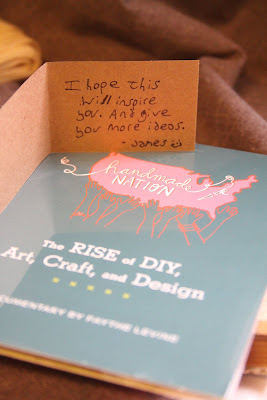 I hope this
will inspire
you. And give
you more ideas.
- James
handmade
NATION
The RISE of DIY,
Art, Craft, and Design
DOCUMENTARY BY FAYTHE LEVINE